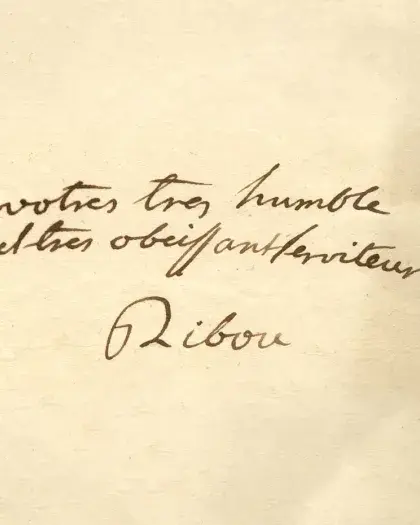 votres tres humble
et tres obeissant serviteur
Ribou